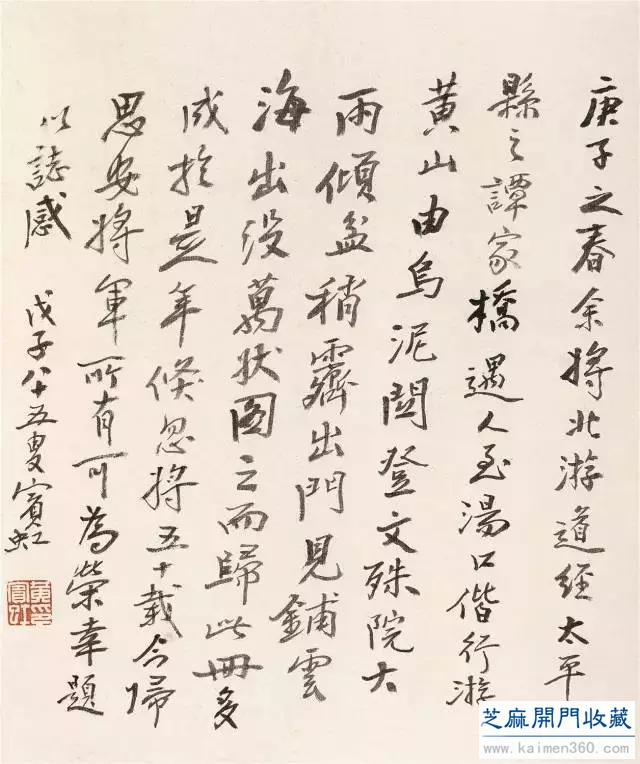 庚子之春余将北游道經太平
縣之譚家橋遇人至湯口偕行游
黄山由烏泥関登文殊院大
雨傾盆稍霽出門見鋪雲
海出没萬状圖之而歸此冊多
成於是年倏忽将五十載今歸
思安将軍所有可為榮幸題
以誌感
戊子八十五叟賓虹
芝麻開門收藏
www.kaimen360.com